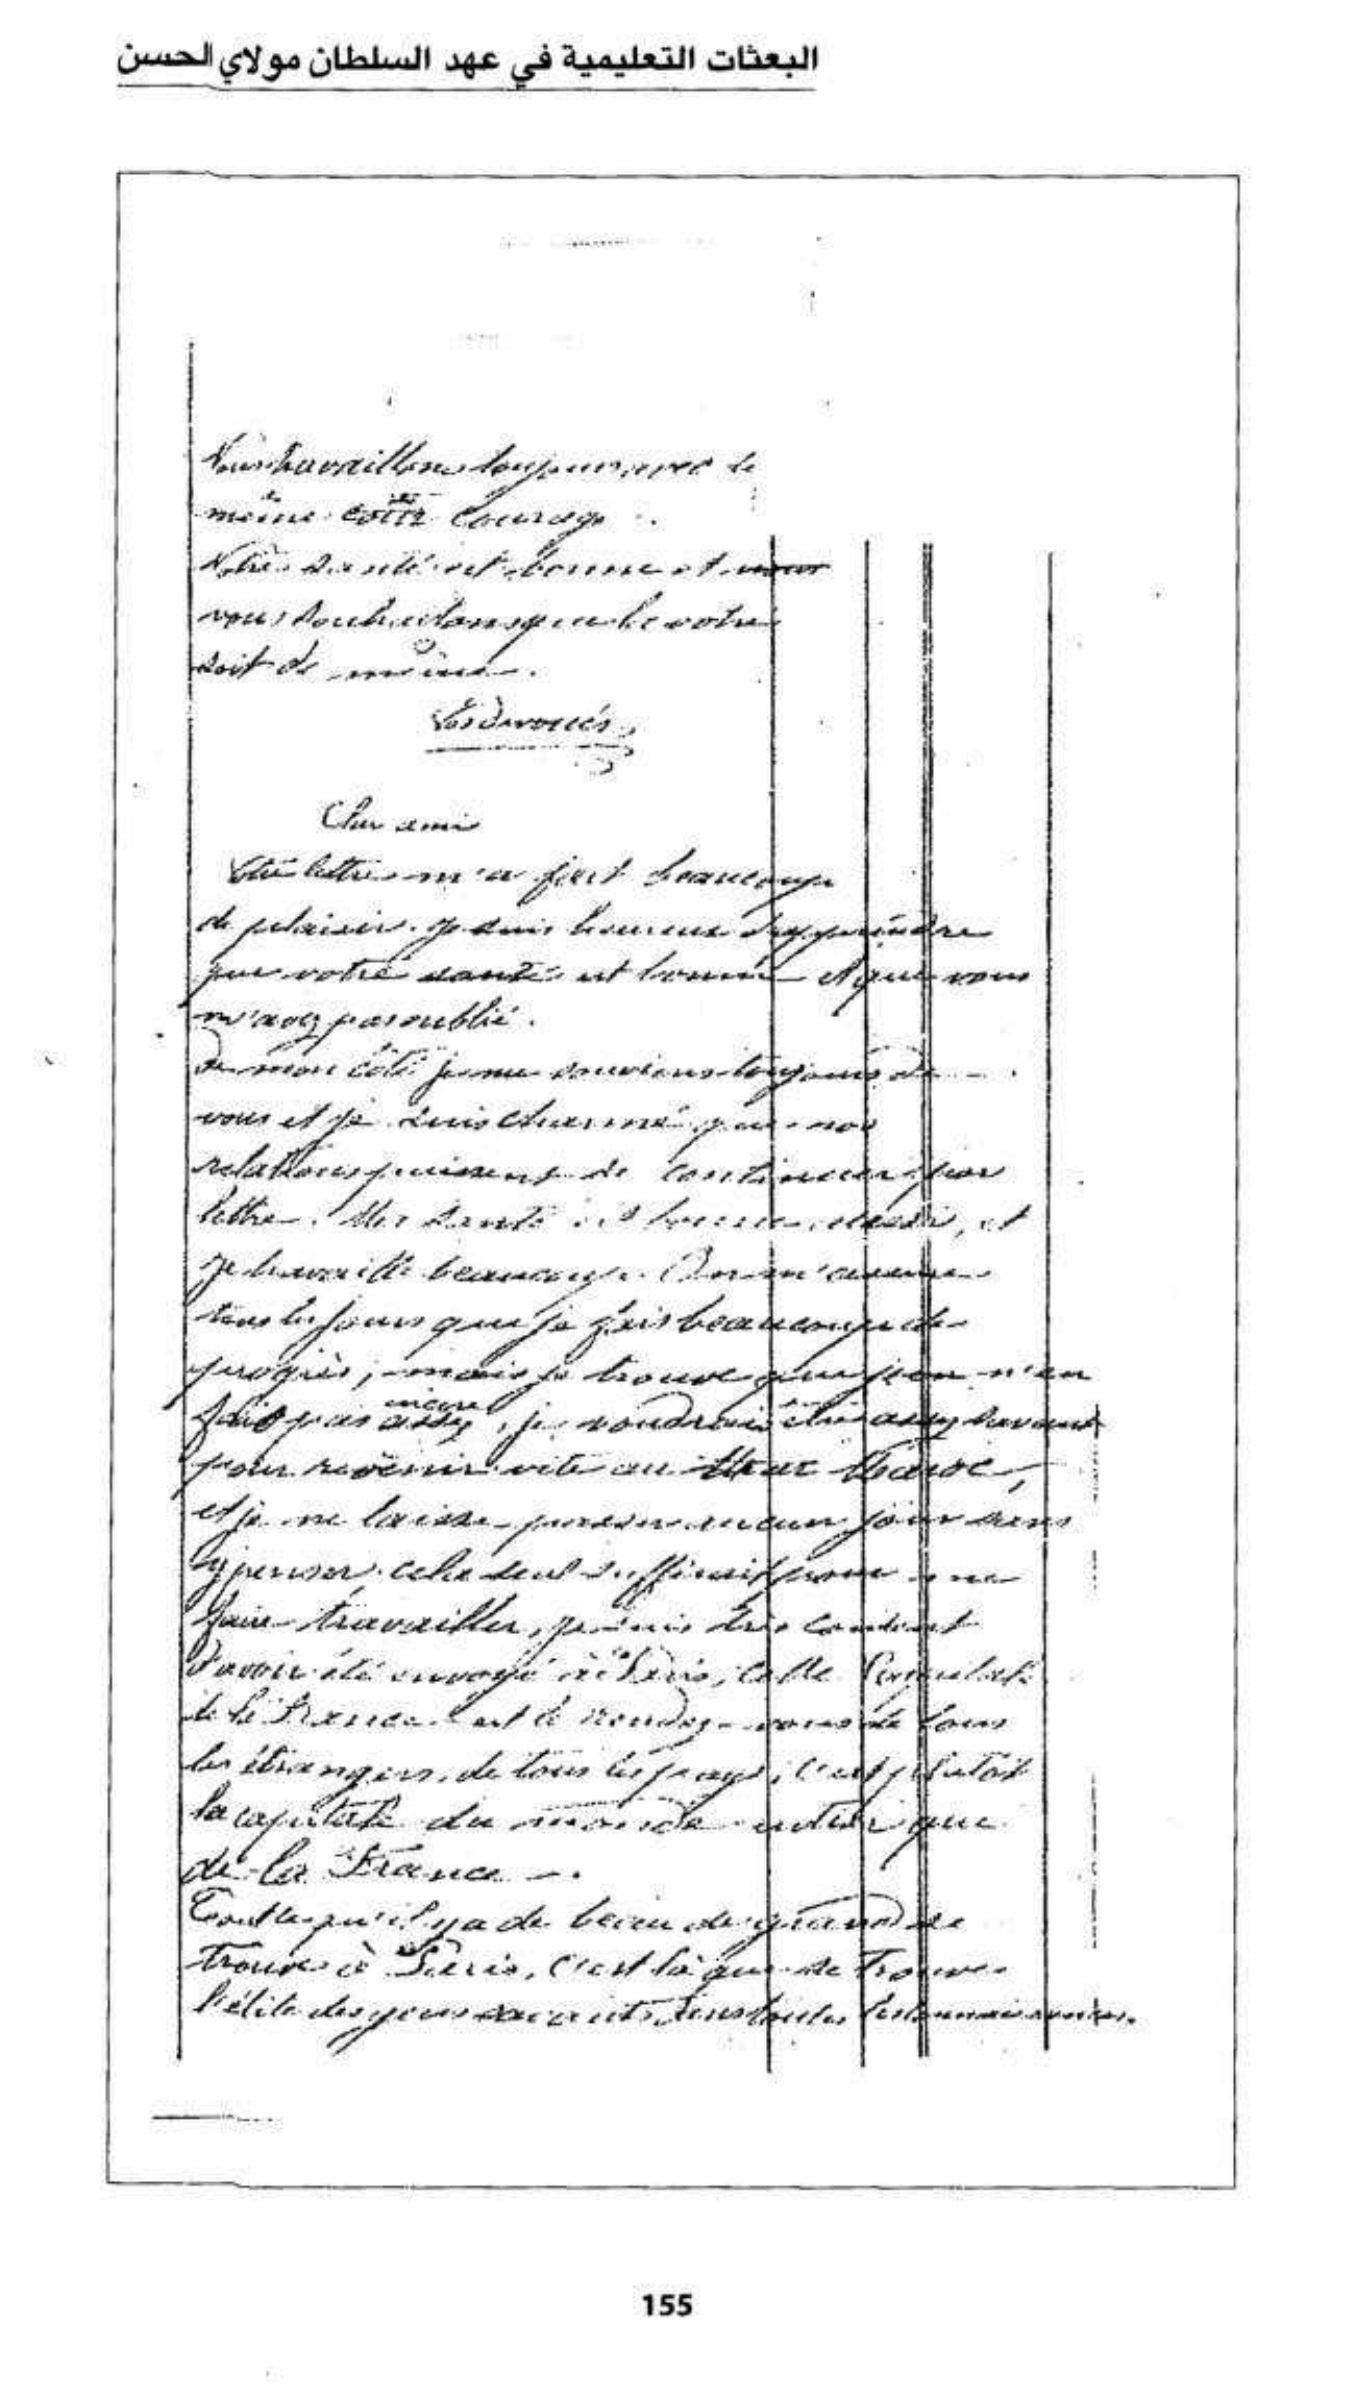 البعثات التعليمية في عهد السلطان مولاي الحسن
Nous travaillons toujours avec le
même courage.
Notre santé est bonne et nous
vous souhaitons que la votre
soit de même.
Vos dévoués
Cher ami
Votre lettre m'a fait beaucoup
de plaisir. Je suis heureux d'apprendre
que votre santé est bonne et que vous
m'avez pas oublié.
De mon côté je me souviens toujours de
vous et je suis charmé que nos
relations puissent se continuer par
lettre. Ma santé est bonne aussi, et
je travaille beaucoup. On m'assure
tous les jours que je fais beaucoup de
progrès, mais je trouve que je n'en
fais pas encore assez, je voudrais être assez savant
pour revenir vite au Maroc,
et je ne laisse passer aucun jour sans
y penser, cela seul suffirait pour me
faire travailler, je suis très content
d'avoir été envoyé à Paris, cette Capitale
de la France est le rendez-vous de tous
les étrangers de tous les pays, c'est plutôt
la capitale du monde entier que
de la France.
Tout ce qu'il y a de beau de grand se
trouve à Paris, c'est là que se trouve
l'élite des gens savants dans toutes les connaissances.
155